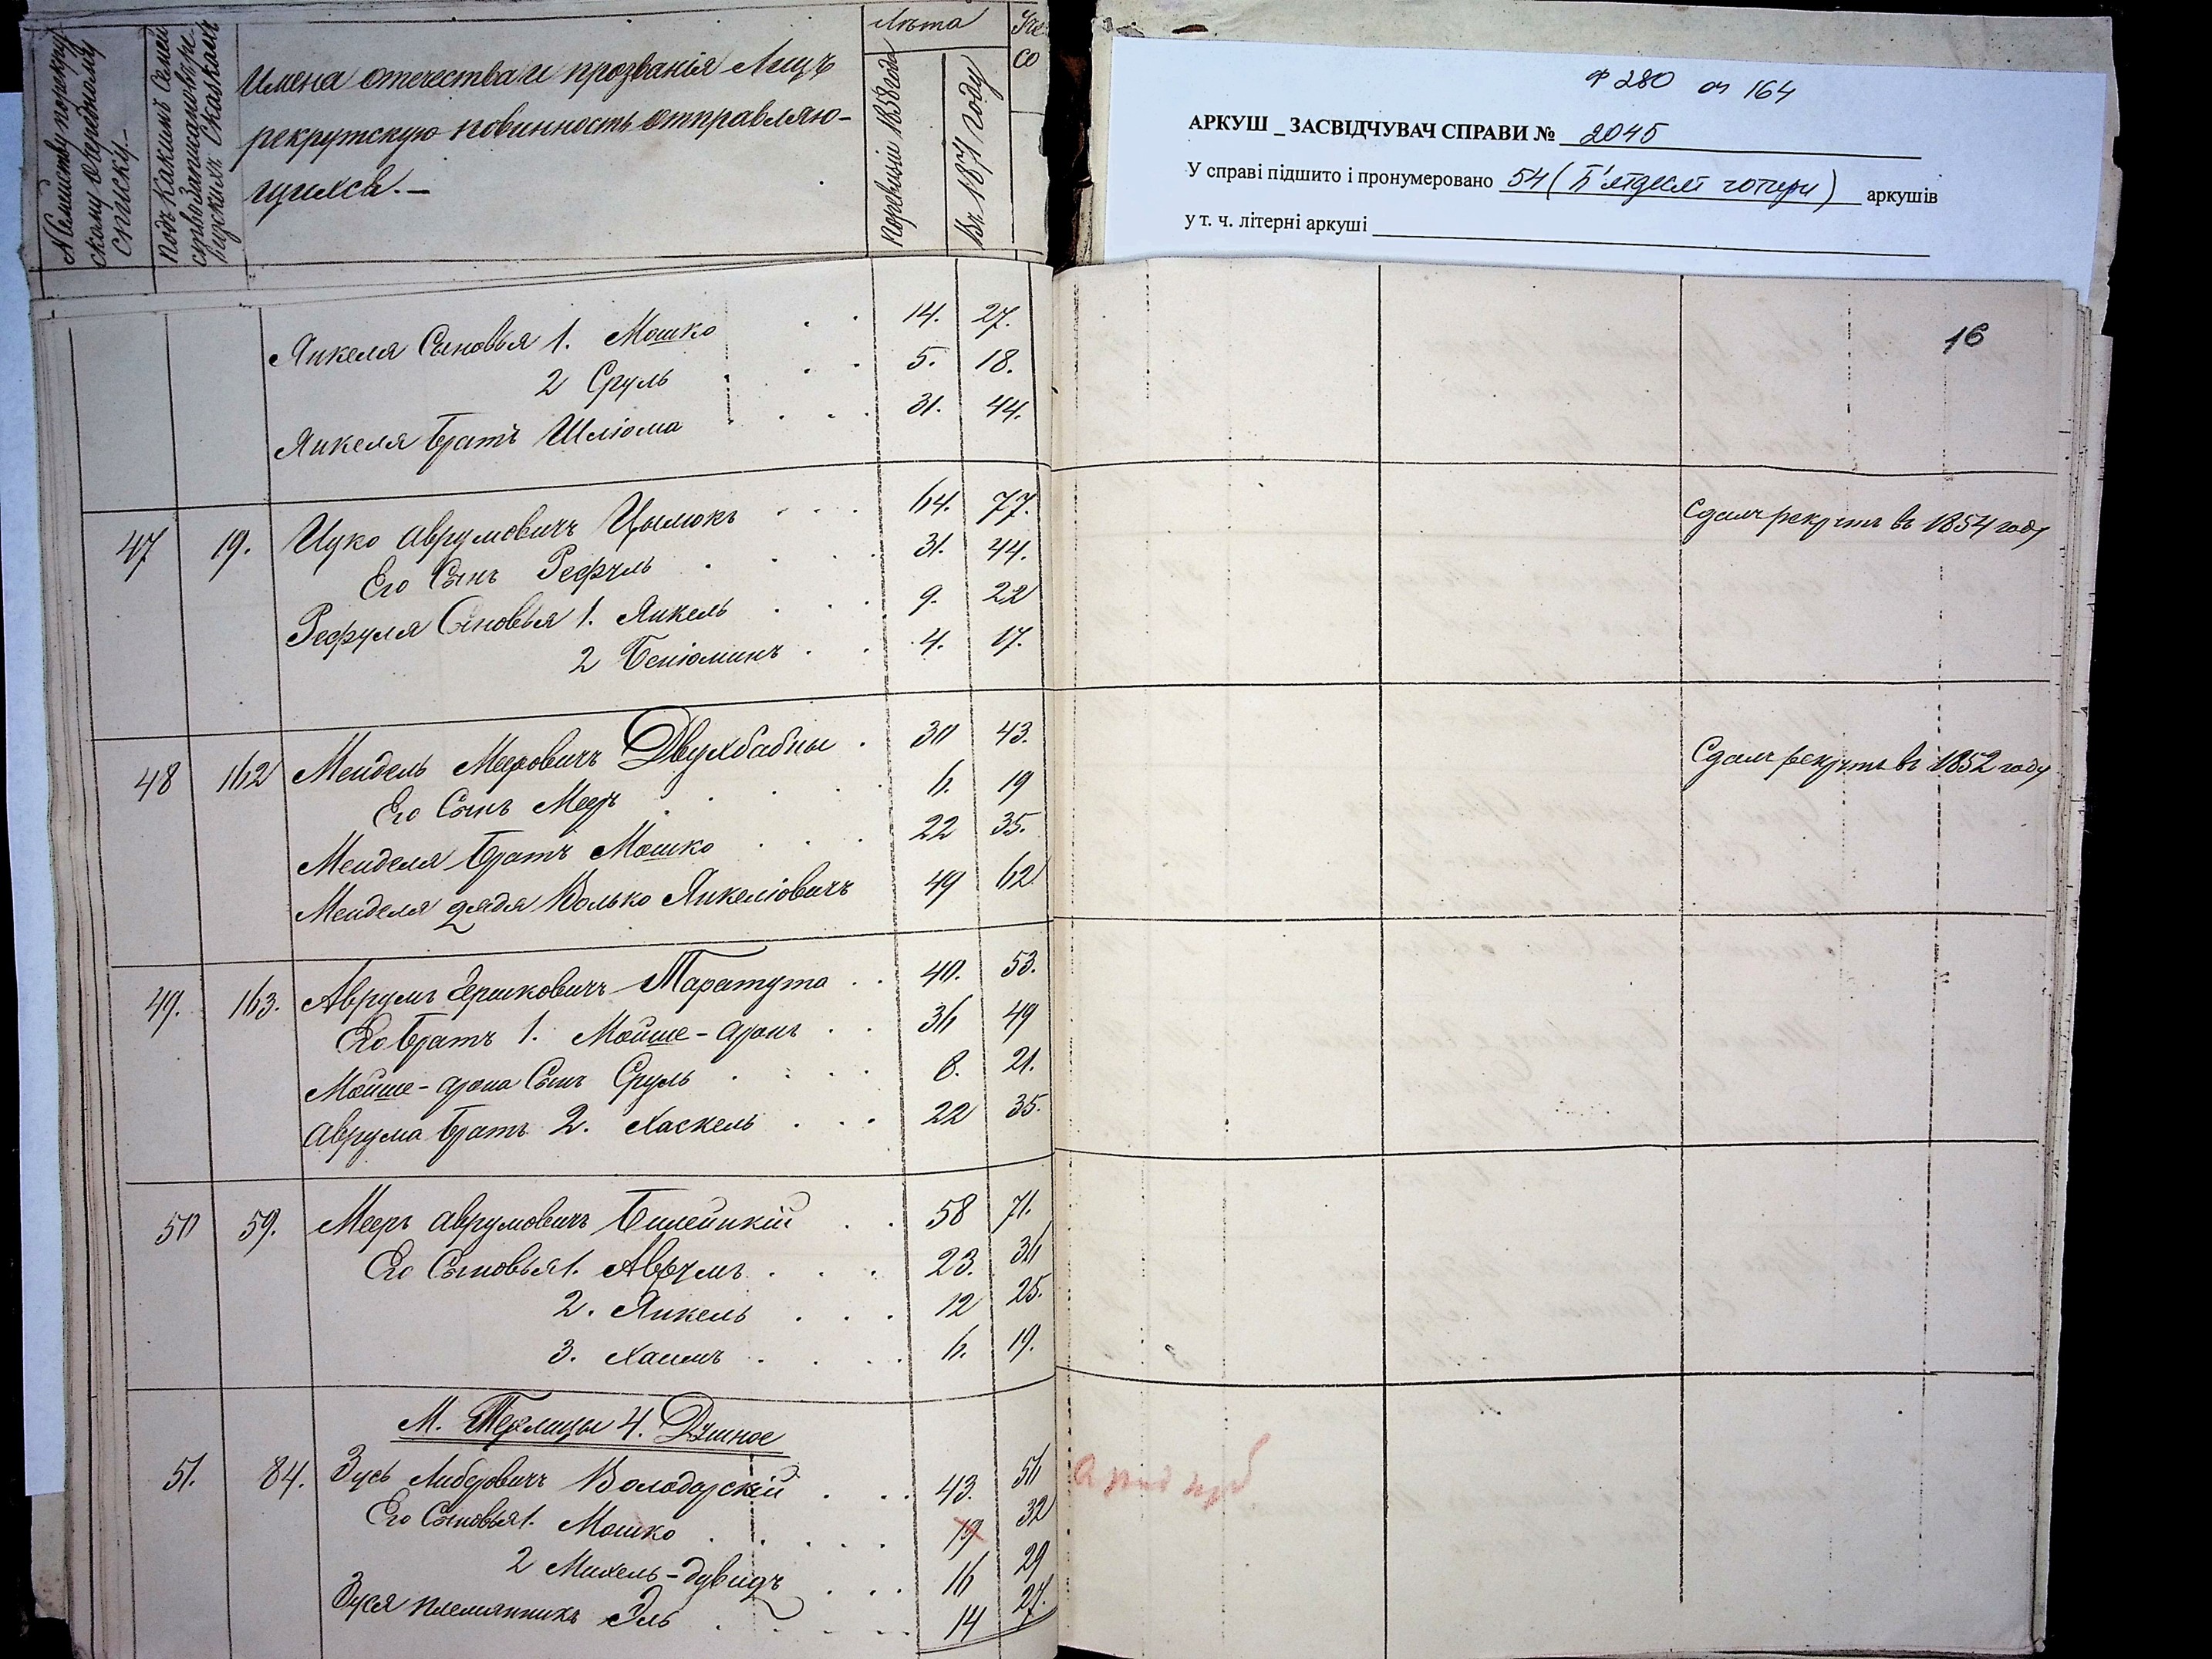 № Семейству по рекрутскому очередному списку.
Подъ какимъ
Имена отечества и прозванія Лицъ
рекрутскую повинность отправляю-
щихся.-
Лѣта
По ревизіи 1858 года
Въ 1871 году
Ф 280 оп 164
АРКУШ _ ЗАСВІДЧУВАЧ СПРАВИ № 2045
У справі підшито і пронумеровано 54 (П'ятдесят чотири) аркушів
у т. ч. літерні аркуші
16
Янкеля Сыновья 1. Мошко 14. 27.
2 Сруль 5. 18.
Янкеля братъ Шліома 31. 44.
47 19. Ицко Аврумовичъ Цылюкъ 64. 77. Сдалъ рекрута въ 1854 году
Его Сынъ Рефуль 31. 44.
Рефуля Сыновья 1. Янкель 9. 22
2 Беніоминъ 4. 17.
48 162 Мендель Мееровичъ Двухбабны 30 43. Сдалъ рекрута въ 1852 году
Его Сынъ Меръ 6. 19
Менделя братъ Мошко 22 35.
Менделя дядя Волько Янкеліовичъ 49 62
49. 163. Аврумъ Гершковичъ Таратута 40. 53.
Его братъ 1. Мойше-Аронъ 36 49
Мойше-Арона Сынъ Сруль 8. 21.
Аврума братъ 2. Хаскель 22 35.
50 59. Мееръ Аврумовичъ Билецкій 58 71.
Его Сыновья 1. Аврумъ 23. 36
2. Янкель 12 25.
3. Хаимъ 6. 19.
М. Терлицы 4. Душное
51. 84. Зусь Либеровичъ Володарскій 43. 56
Его Сыновья 1. Мошко 19 32
2 Михель-Дувидъ 16 29
Зуся племянникъ Эль 14 27.